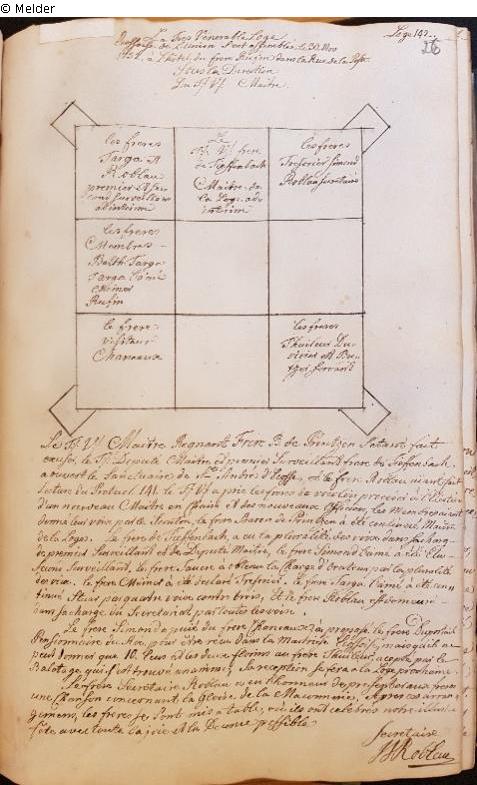 © Melder
Loge 142.
26
La Tres Venerable Loge
Ecossoise de l'Union s'est assemblée le 30 Nov
a l'hotel du frere Rufin dans la Rue de la Poste
Sous la Direction
Du Maitre
les freres
Targa et
Roblau
premier et Se-
cond surveillans
ad interim
Le
frere
de Tieffenbach
Maitre de
la Loge ad
interim
les freres
Tresorier Simond
Roblau secretaire
les freres
Membres
Balth. Targa
Targa l'ainé
Meinet
Rufin
le frere
visiteur
Charreaux
les freres
Thuileur Du-
vivier et
servand
Le Maitre Regnant Frere B. de s'etant fait
excuser, le Deputé Maitre et premier Surveillant frere de Tieffenbach
a ouvert le Sanctuaire de St André d'Ecosse, et le frere Roblau aiant fait
Lecture du Protocol 141. le a prié les freres de vouloir proceder à l'Election
d'un nouveau Maitre en Chaire et des nouveaux Officiers, les Membres aiant
donné leur voix par le Scrutin, le frere Baron de a été continué Maitre
de la Loge. Le frere de Tieffenbach, a eu la pluralité des voix dans sa charge
de premier Surveillant et de Deputé Maitre, le frere Simond l'ainé a été Elu
Second Surveillant, le frere a obtenu la charge d'Orateur par la pluralité
de voix. le frere Meinet a été declaré Tresorier. le frere Targa l'ainé a été con-
tinué par quatre voix contre trois, et le frere Roblau est demeuré
dans sa charge du Secretariat par toutes les voix.
Le frere Simond a prié du frere Charreaux a proposé le frere Duportail
Pensionnaire du Roy, pour être récu dans la Maitrise Ecossoise, mais qu'il ne
peut donner que 10. Ecus et les deux florins au frere Thuileur, accepté par le
Balotage qui s'est trouvé unanime, Sa reception se fera a la Loge prochaine.
Le frere Secretaire Roblau a eu l'honneur de presenter aux freres
une Chanson concernant la gloire de la Maconnerie, Apres ces arran-
gemens, les freres se sont mis a table, où ils ont celebrés notre illustre
fête avec toute la joie et la Decence possible.
Secretaire
Roblau